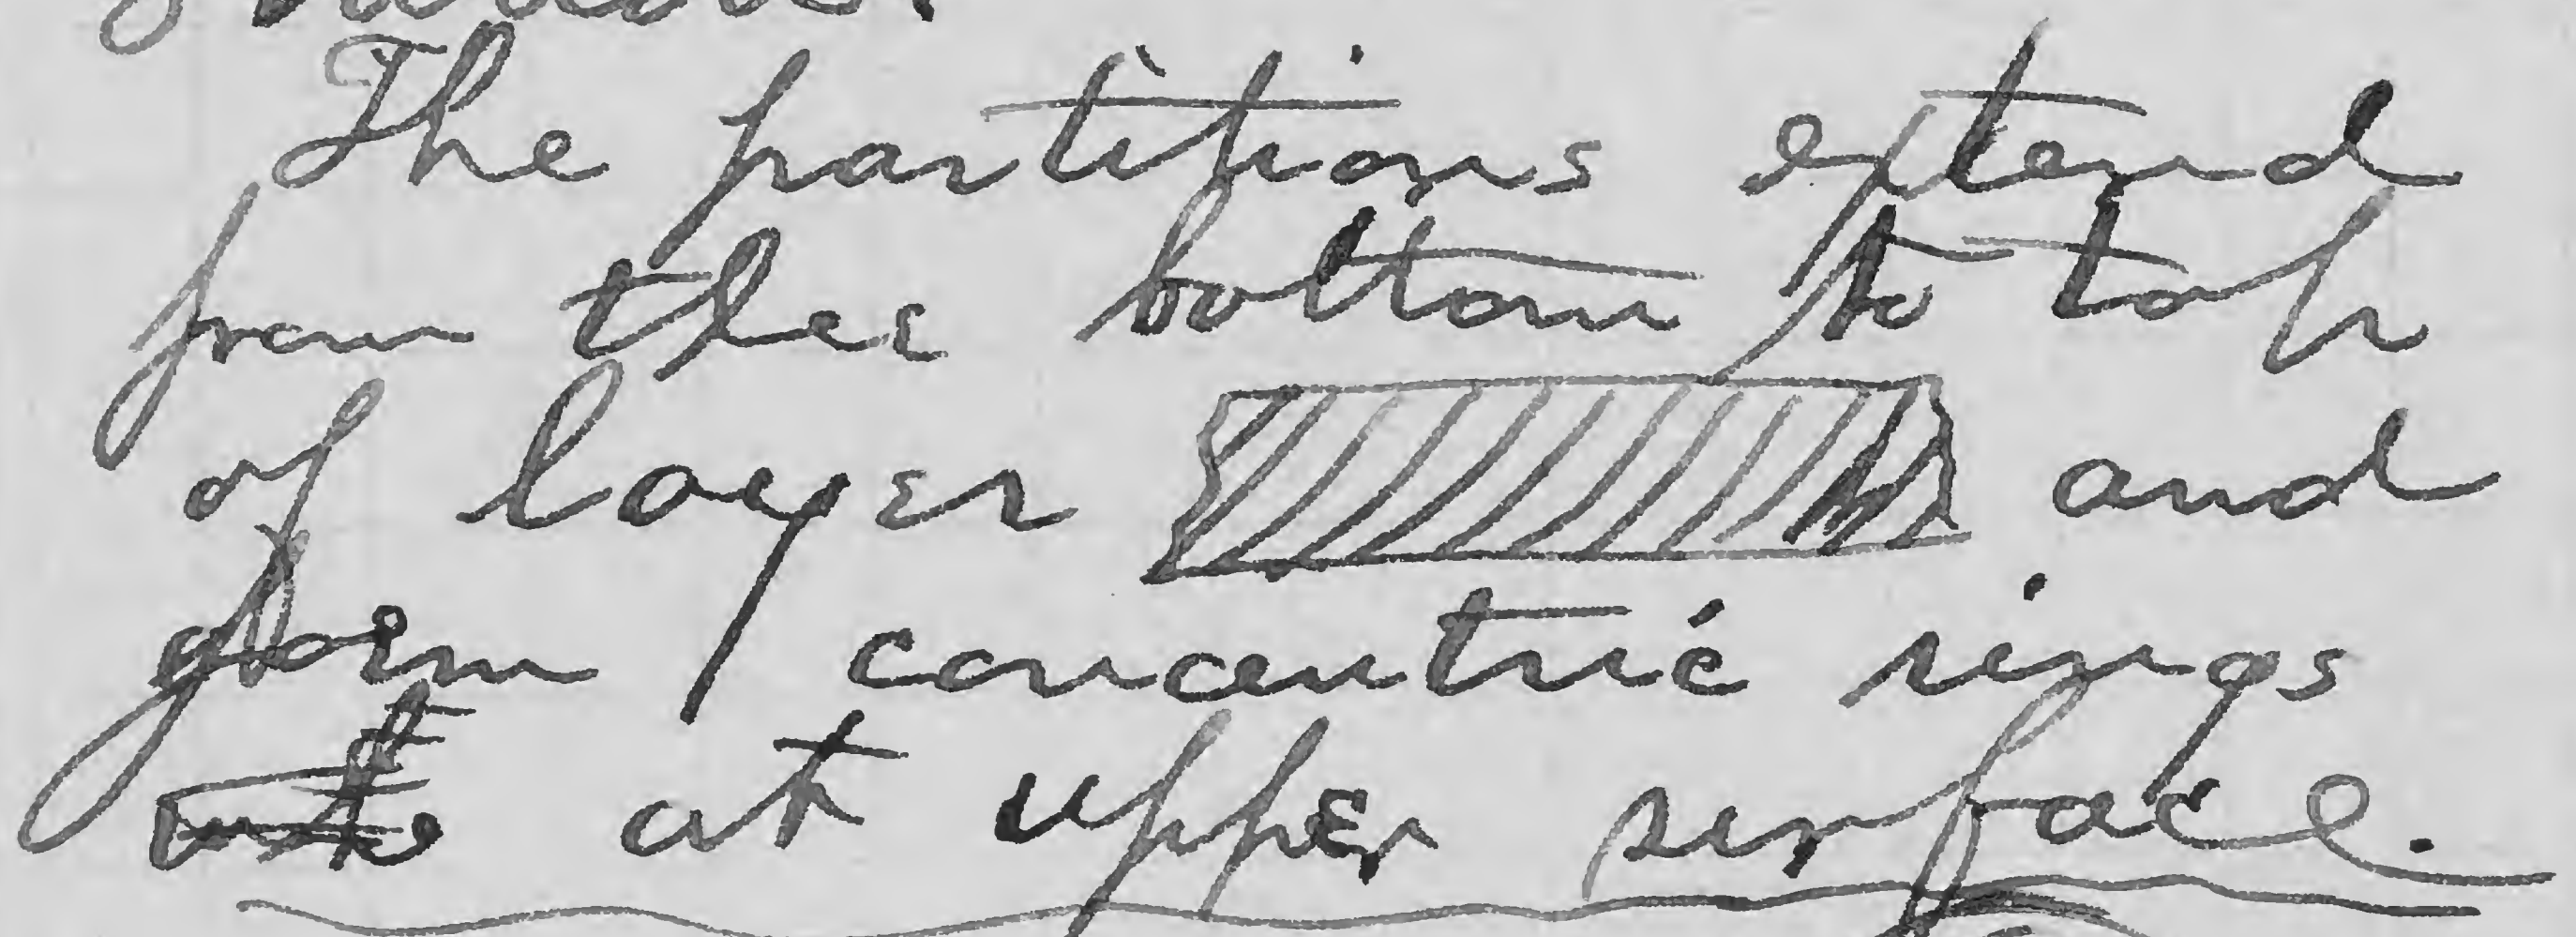 The partitions extend
from the bottom to top
of layer and
form concentric rings
at upper surface.